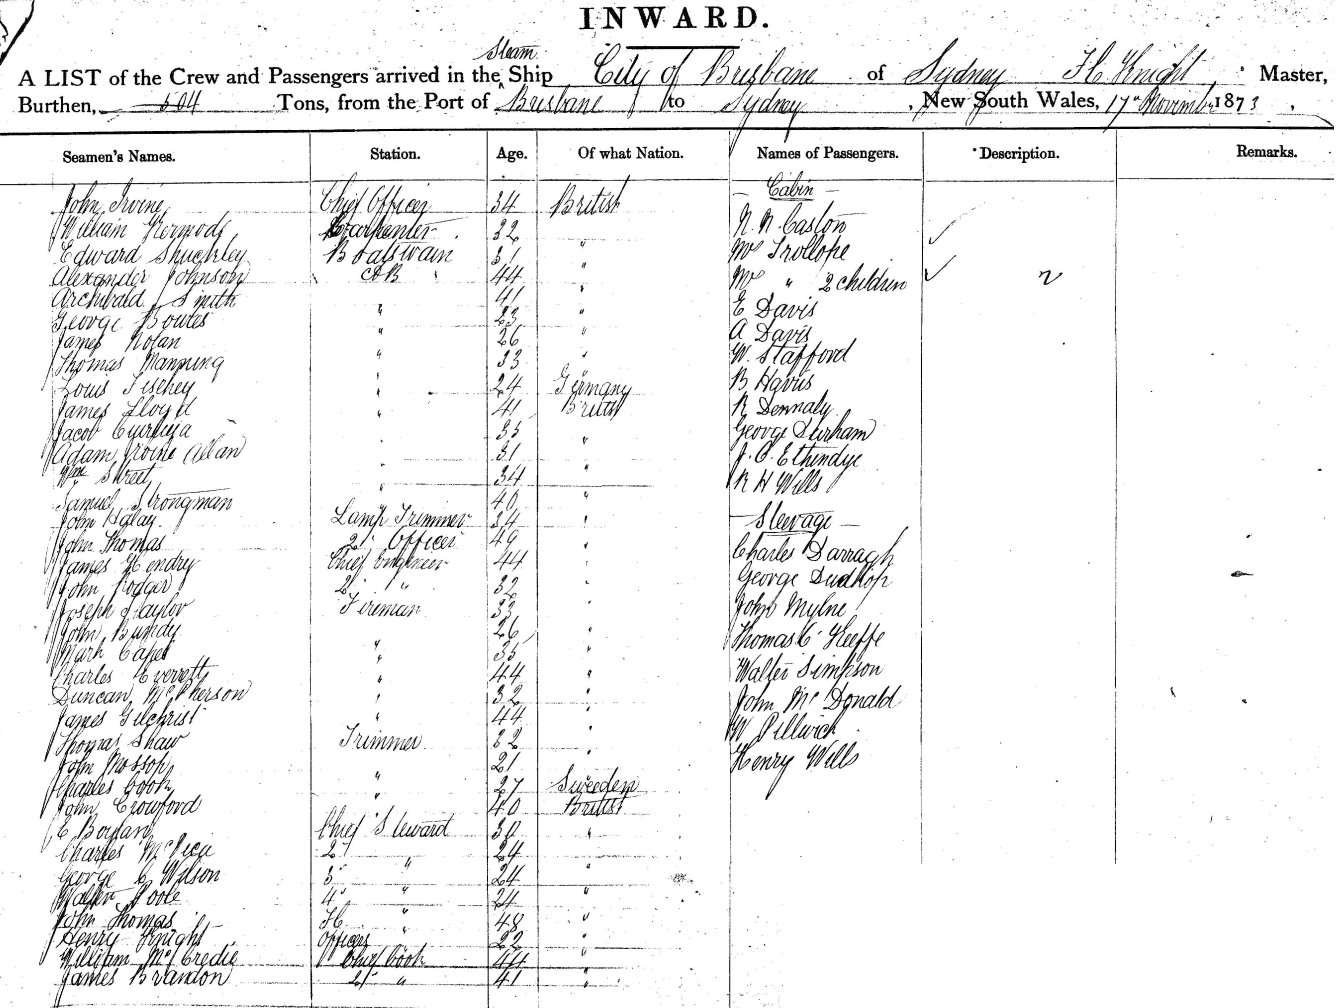 INWARD.
Steam
A LIST of the Crew and Passengers arrived in the Ship City of Brisbane of Sydney H. Knight Master,
Burthen, 504 Tons, from the Port of Brisbane to Sydney, New South Wales, 17th November 1873,
Seamen's Names. Station. Age. Of what Nation. Names of Passengers. Description. Remarks.
John Irvine Chief Officer 34 British — Cabin —
William Kermode Carpenter 32 " N. N. Caston
Edward Shuckley Boatswain 31 " Mr Trollope
Alexander Johnson AB 44 " Mrs " 2 children 2
Archibald Smith " 41 " E Davis
George Bowes " 23 " A Davis
James Nolan " 26 " W. Stafford
Thomas Manning " 33 "
Louis Fischey " 24 Germany B Havis
James Lloyd " 41 British R Dennaly
Jacob 35 " George Durham
Adam Irvine Allan 31 " J. O. Ethendge
Wm Street " 34 " R H Wills
Samuel Strongman " 40 "
John Halay. Lamp Trimmer 34 " — Steerage —
John Thomas 2d Officer 49 " Charles Darragh
James Hendry Chief Engineer 44 " George Dudhop
John Rodger 2d " 32 " John Mylne
Joseph Taylor Fireman 33 "
John Bundy " 26 " Thomas O'Keeffe
Mark Capel " 35 "
Charles Everett " 44 " Walter Simpson
Duncan McPherson " 32 " John McDonald
James Gilchrist " 44 " W Pillwich
Thomas Shaw Trimmer 32 " Henry Wills
John Mossop " 21 "
Charles Cook " 27 Sweeden
John Crowford " 40 British
E Boylan Chief Steward 30 "
Charles McVica 2d " 24 "
George C Wilson 3d " 24 "
Walter Poole 4th " 24 "
John Thomas " 48 "
Henry Knight Officers 22 "
William McCredie Chief Cook 44 "
James Brandon 2d " 41 "